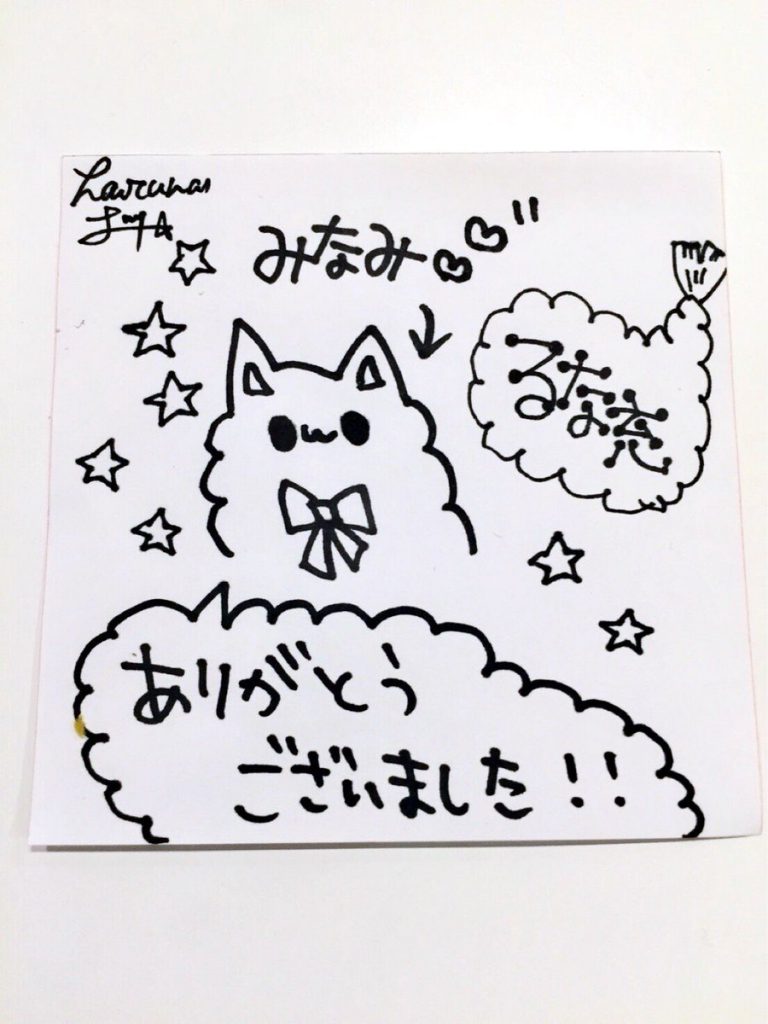 みなみ
るな
ありがとう
ございました!!